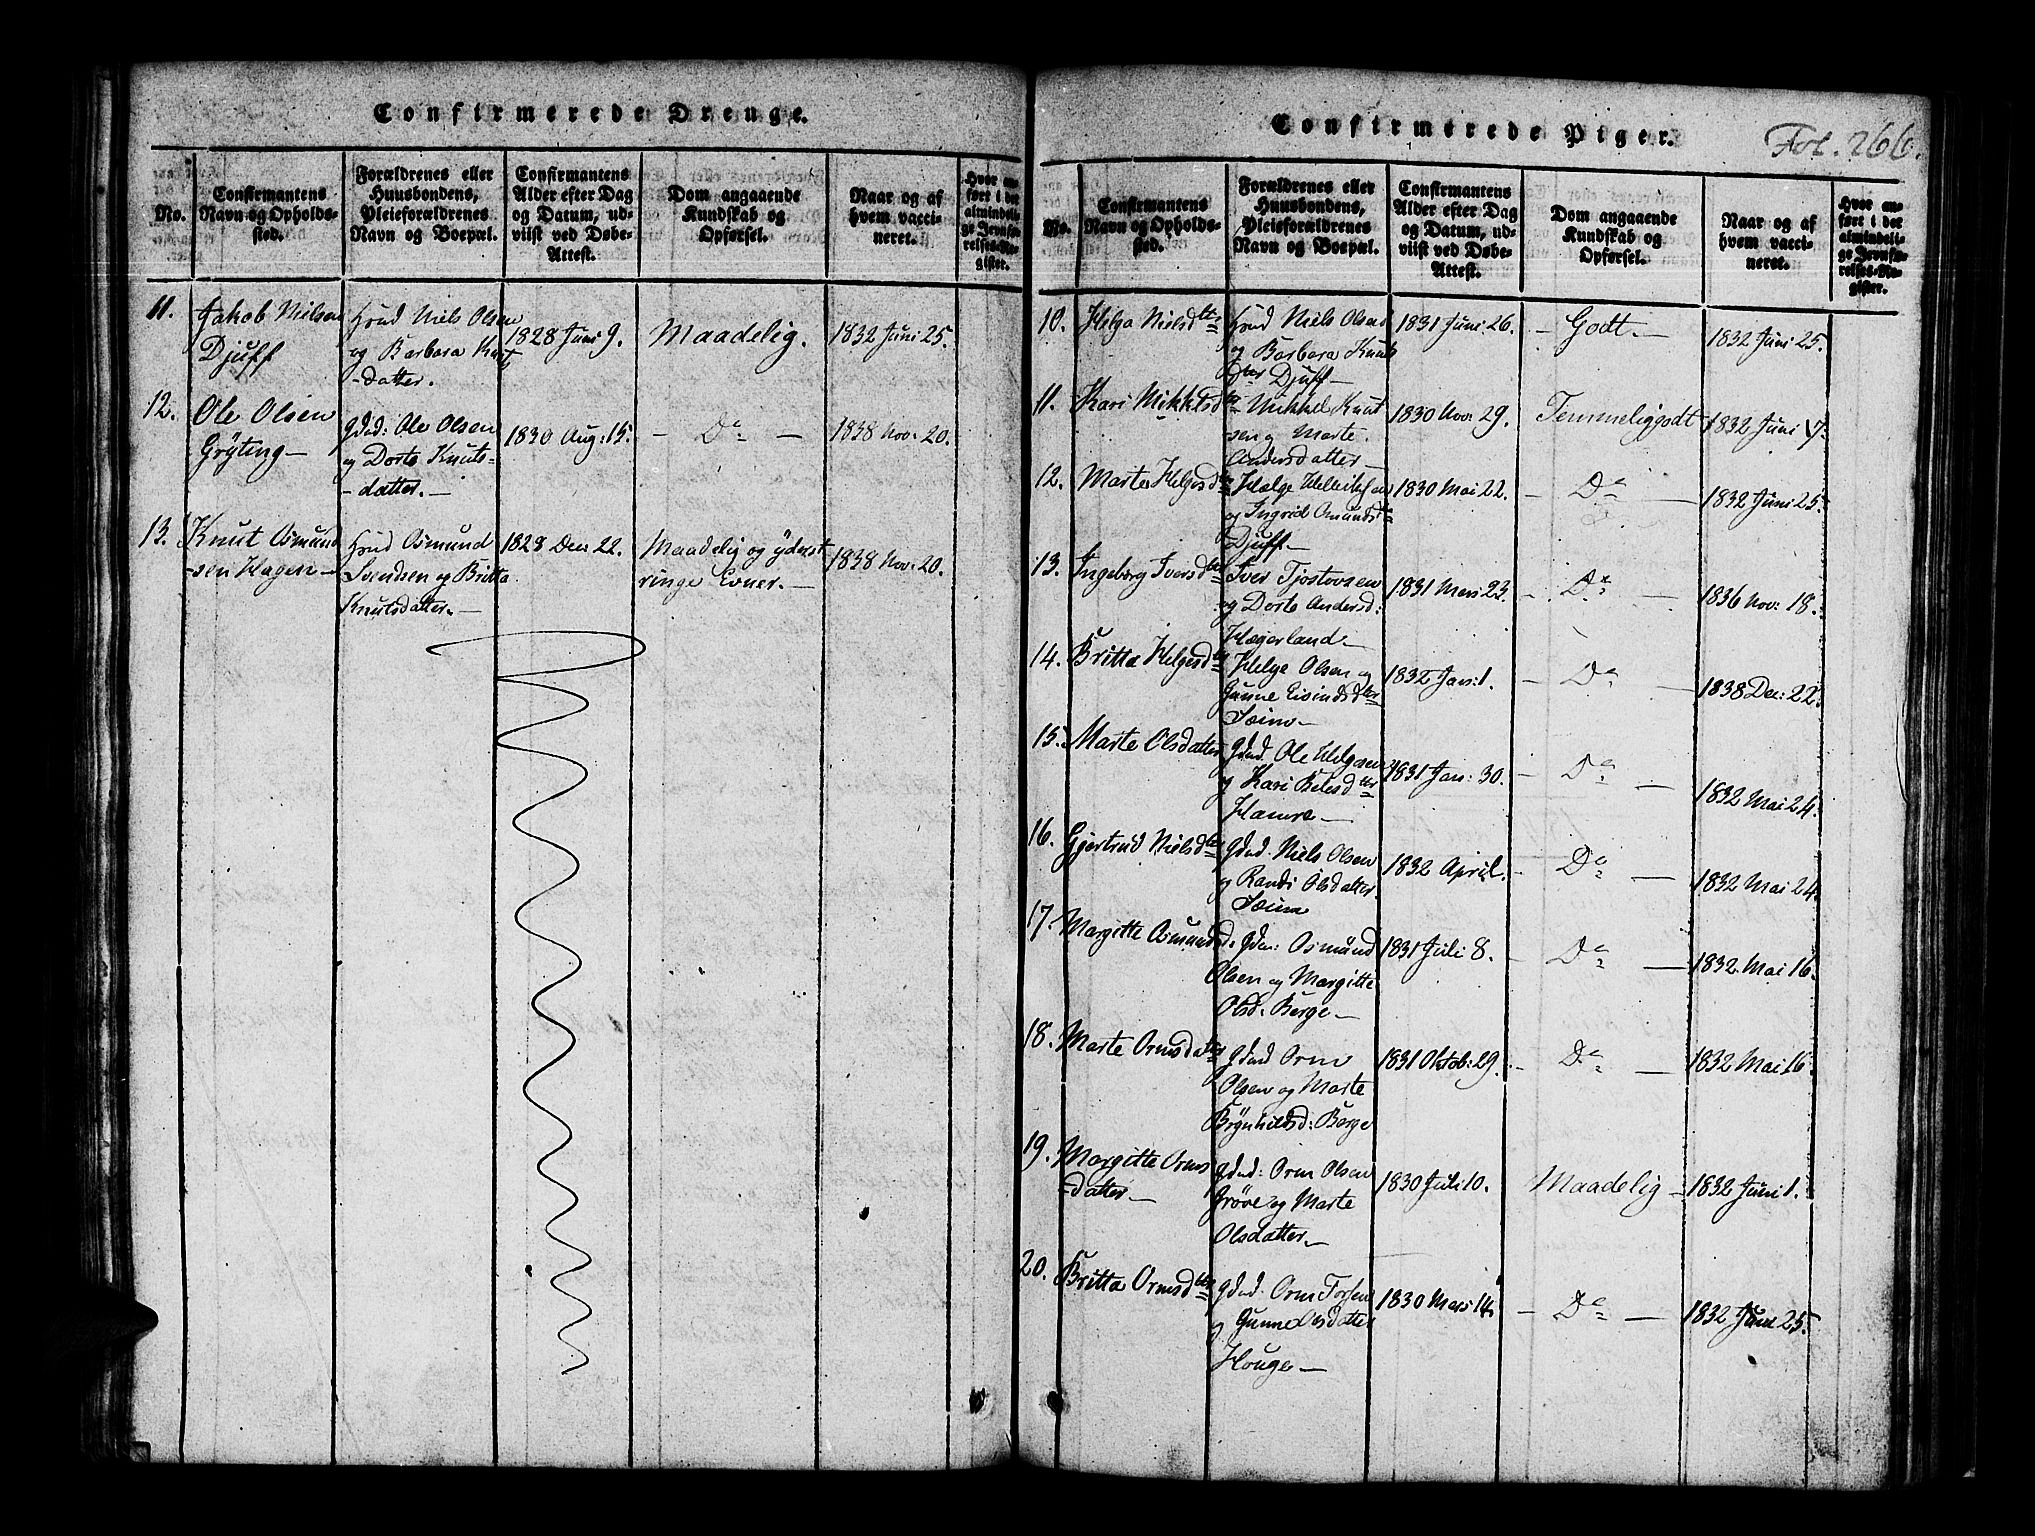 Confirmerede Drenge.
No.
Confirmantens
Navn og Opholds-
sted.
Forældrenes eller
Huusbondens,
Pleieforældrenes
Navn og Boepæl.
Confirmantens
Alder efter Dag
og Datum, ud-
viist ved Døbe-
Attest.
Dom angaaende
Kundskab og
Opførsel.
Naar og af
hvem vacci-
neret.
Hvor an-
ført i det
almindeli-
ge Jevnfø-
relses-Re-
gister.
11.
Jakob Nielsen
Djuff
Hmd Niels Olsen
og Barbara Knuts
-datter.
1828 Juni 9.
Maadelig.
1832 Juni 25.
12.
Ole Olsen
Gryting—
Gdmd: Ole Olsen
og Dorte Knuts-
-datter.—
1830 Aug: 15.
— Do —
1838 Nov: 20.
13.
Knut Osmund
-sen Hagen—
Hmd Osmund
Svendsen og Britta
Knutsdatter.—
1828 Dec: 22.
Maadelig og yderst
ringe Evner.—
1838 Nov: 20.
Confirmerede Piger.
Fol. 266.
No.
Confirmantens
Navn og Opholds-
sted.
Forældrenes eller
Huusbondens,
Pleieforældrenes
Navn og Boepæl.
Confirmantens
Alder efter Dag
og Datum, ud-
viist ved Døbe-
Attest.
Dom angaaende
Kundskab og
Opførsel.
Naar og af
hvem vacci-
neret.
Hvor an-
ført i det
almindeli-
ge Jevnfø-
relses-Re-
gister.
10.
Helga Nielsdtr
Hmd Niels Olsen
og Barbara Knuts
Dtter Djuff—
1831 Juni 26.
— Godt.—
1832 Juni 25.
11.
Kari Mikkelsdtr
Mikkel Knut
sen og Marte
Andersdatter—
1830 Nov: 29.
Temmelig godt
1832 Juni 7.
12.
Marte Helgesdtr
Hælge
og Ingrid Omundsdtr
Djuff—
1830 Mai 22.
— Do —
1832 Juni 25.
13.
Ingeborg Iversdtr
Iver Tjostovsen
og Dorte Andersd:
Hægerland—
1831 Mars 23.
— Do —
1836 Nov: 18.
14.
Britta Helgesdtr
Helge Olsen og
Gunne Eivindsdtter
Seim—
1832 Jan: 1.
— Do —
1838 Dec: 22.
15.
Marte Olsdatter
Gdmd Ole Helgesen
og Kari
Hamre—
1831 Jan: 30.
— Do —
1832 Mai 24.
16.
Gjertrud Nielsdtr
Gdmd. Niels Olsen
og Randi Olsdatter.
Seim
1832 April.
— Do —
1832 Mai 24.
17.
Margitte Osmundsd.
Gdm: Osmund
Olsen og Margitte
Olsd: Berge—
1831 Juli 8.
— Do —
1832 Mai 16.
18.
Marte Ormsdatter
Gdmd Orm
Olsen og Marte
Brynhildsd: Berge
1831 Oktob: 29.
— Do —
1832 Mai 16.
19.
Margitte Orms
-datter—
Gdmd: Orm Olsen
Grove og Marte
Olsdatter—
1830 Juli 10.
Maadelig —
1832 Juni 1.
20.
Britta Ormsdtr
Gdmd. Orm
og Gunne Olsdatter
Houge—
1830 Mars 14.
— Do —
1832 Juni 25.